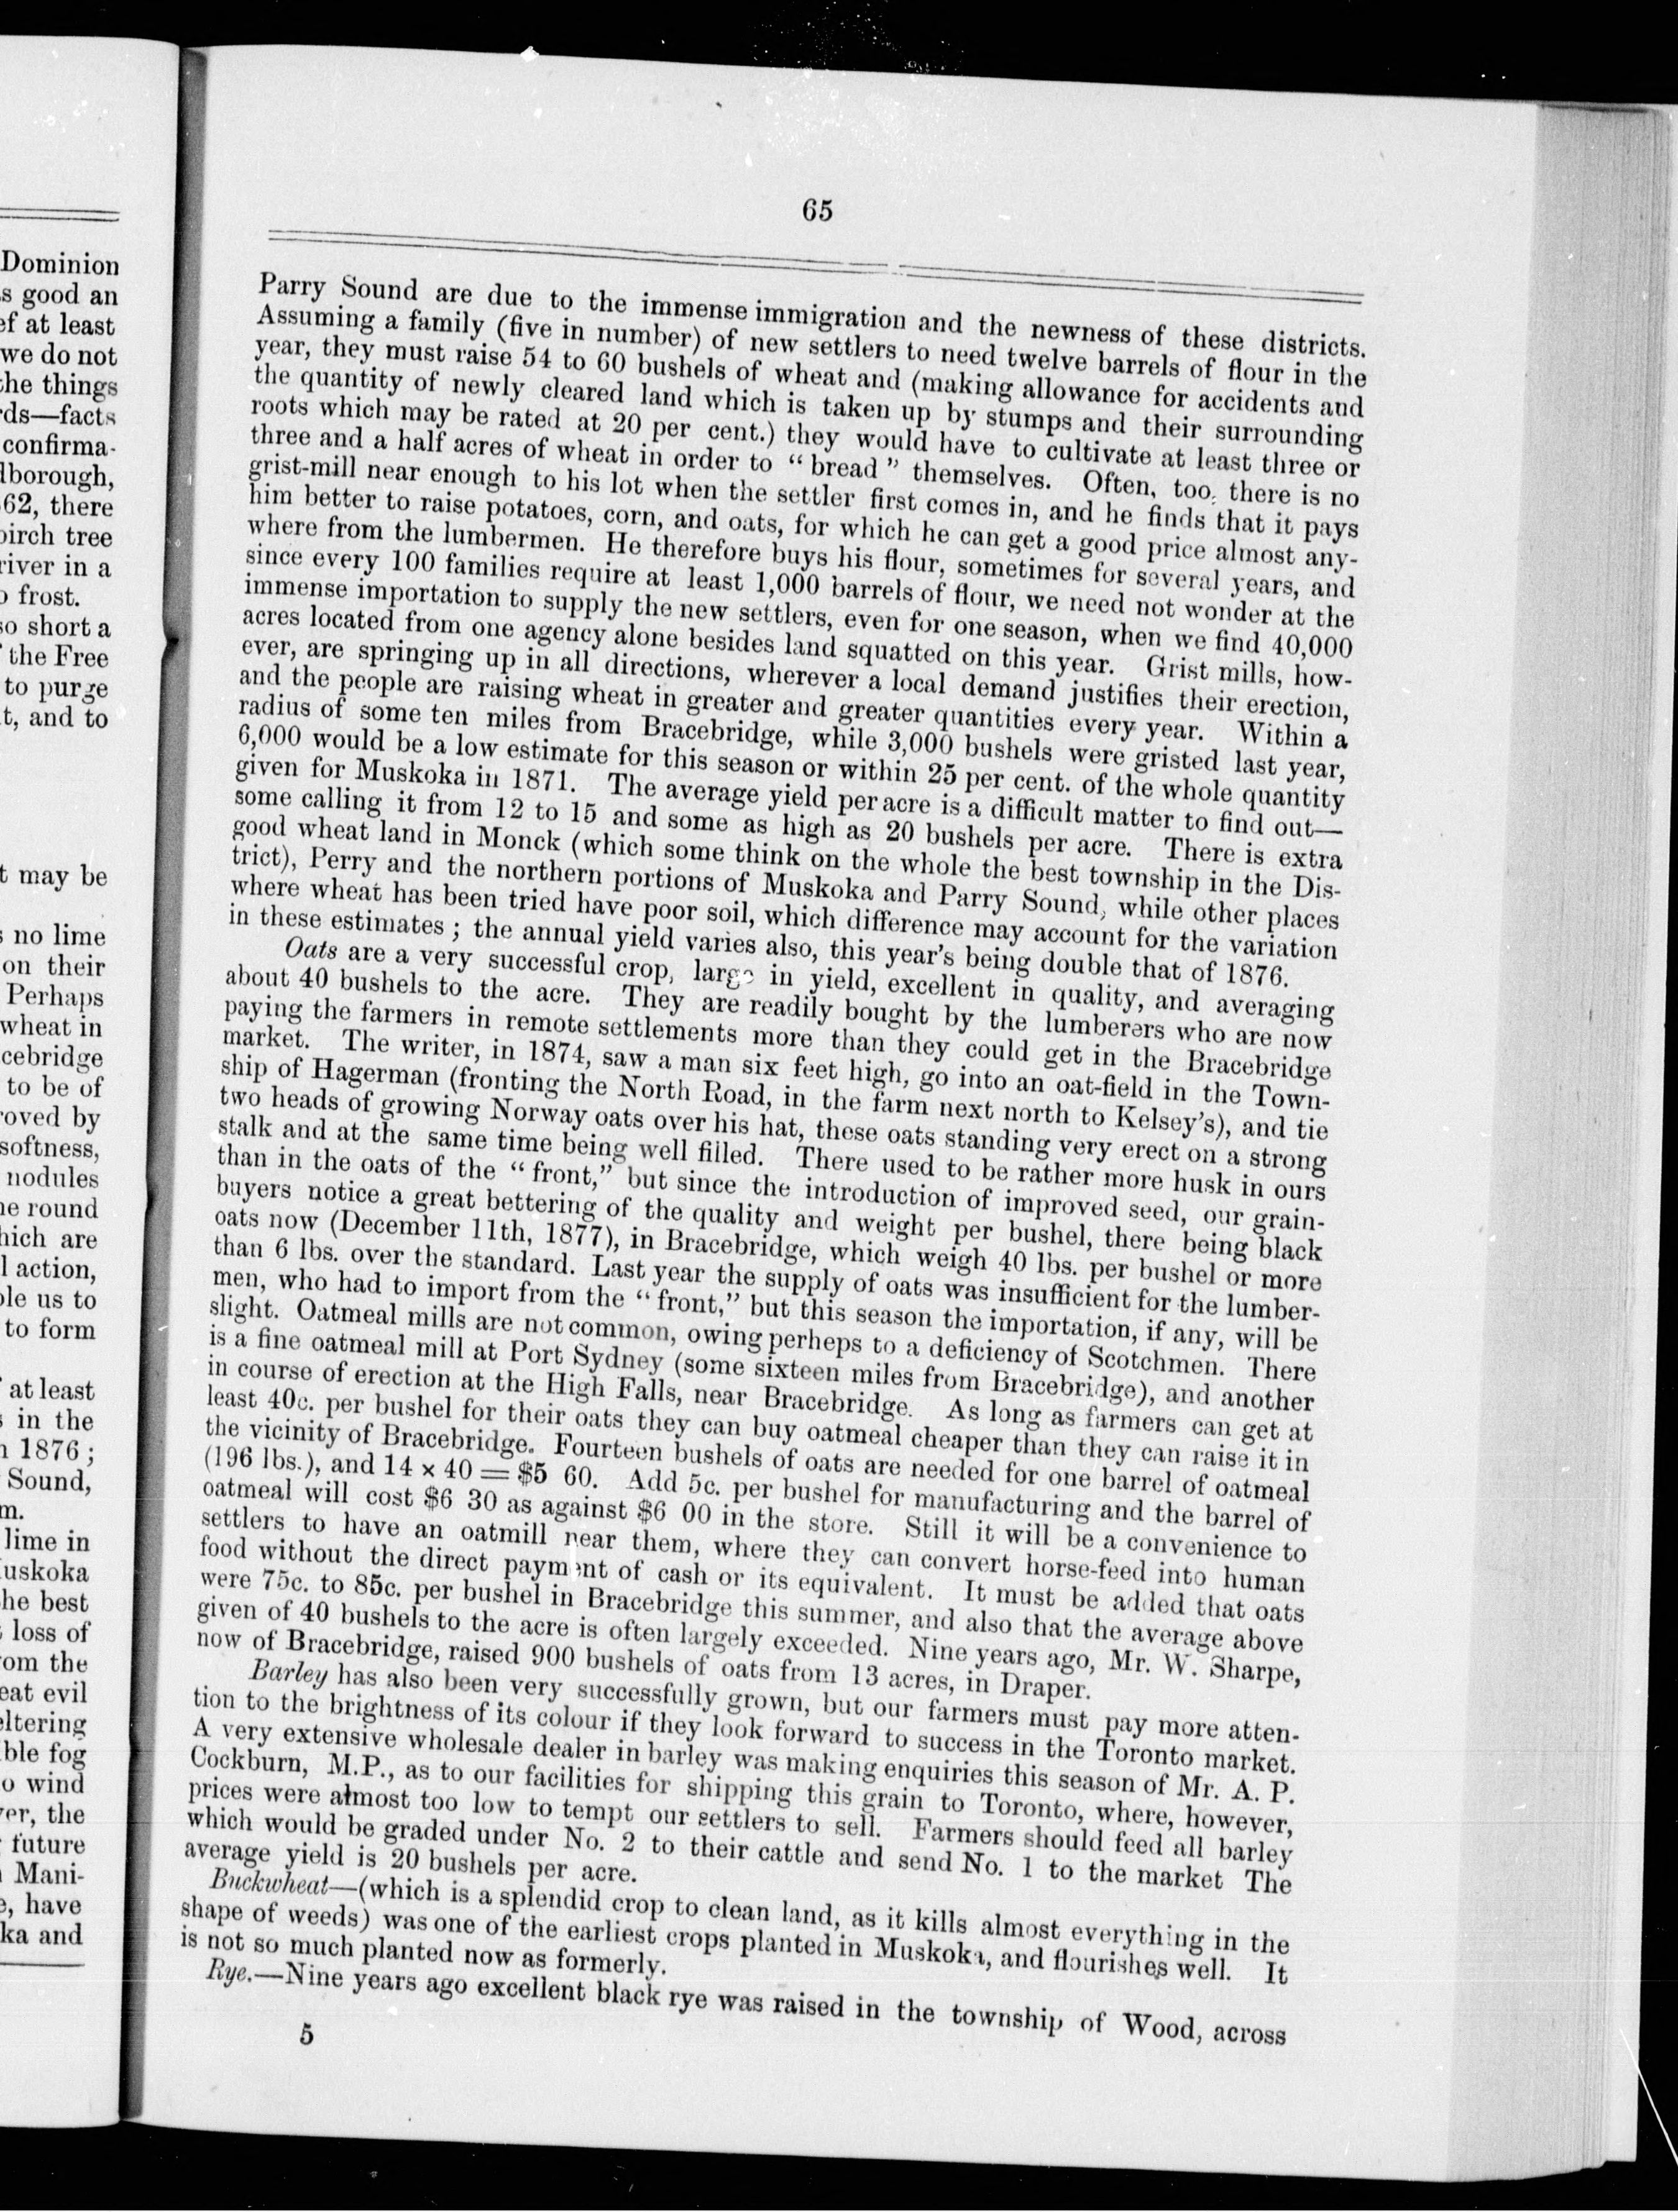 Dominion
s good an
ef at least
we do not
the things
rds—facts
confirma-
lborough,
62, there
birch tree
river in a
o frost.
so short a
the Free
to purge
t, and to
t may be
s no lime
on their
Perhaps
wheat in
cebridge
to be of
roved by
softness,
nodules
he round
hich are
l action,
ble us to
to form
at least
s in the
n 1876;
Sound,
m.
lime in
uskoka
he best
loss of
rom the
eat evil
eltering
ble fog
o wind
ver, the
future
Mani-
e, have
ka and
65
Parry Sound are due to the immense immigration and the newness of these districts.
Assuming a family (five in number) of new settlers to need twelve barrels of flour in the
year, they must raise 54 to 60 bushels of wheat and (making allowance for accidents and
the quantity of newly cleared land which is taken up by stumps and their surrounding
roots which may be rated at 20 per cent.) they would have to cultivate at least three or
three and a half acres of wheat in order to "bread" themselves. Often, too, there is no
grist-mill near enough to his lot when the settler first comes in, and he finds that it pays
him better to raise potatoes, corn, and oats, for which he can get a good price almost any-
where from the lumbermen. He therefore buys his flour, sometimes for several years, and
since every 100 families require at least 1,000 barrels of flour, we need not wonder at the
immense importation to supply the new settlers, even for one season, when we find 40,000
acres located from one agency alone besides land squatted on this year. Grist mills, how-
ever, are springing up in all directions, wherever a local demand justifies their erection,
and the people are raising wheat in greater and greater quantities every year. Within a
radius of some ten miles from Bracebridge, while 3,000 bushels were gristed last year,
6,000 would be a low estimate for this season or within 25 per cent. of the whole quantity
given for Muskoka in 1871. The average yield per acre is a difficult matter to find out—
some calling it from 12 to 15 and some as high as 20 bushels per acre. There is extra
good wheat land in Monck (which some think on the whole the best township in the Dis-
trict), Perry and the northern portions of Muskoka and Parry Sound, while other places
where wheat has been tried have poor soil, which difference may account for the variation
in these estimates; the annual yield varies also, this year's being double that of 1876.
Oats are a very successful crop, large in yield, excellent in quality, and averaging
about 40 bushels to the acre. They are readily bought by the lumberers who are now
paying the farmers in remote settlements more than they could get in the Bracebridge
market. The writer, in 1874, saw a man six feet high, go into an oat-field in the Town-
ship of Hagerman (fronting the North Road, in the farm next north to Kelsey's), and tie
two heads of growing Norway oats over his hat, these oats standing very erect on a strong
stalk and at the same time being well filled. There used to be rather more husk in ours
than in the oats of the "front," but since the introduction of improved seed, our grain-
buyers notice a great bettering of the quality and weight per bushel, there being black
oats now (December 11th, 1877), in Bracebridge, which weigh 40 lbs. per bushel or more
than 6 lbs. over the standard. Last year the supply of oats was insufficient for the lumber-
men, who had to import from the "front," but this season the importation, if any, will be
slight. Oatmeal mills are not common, owing perheps to a deficiency of Scotchmen. There
is a fine oatmeal mill at Port Sydney (some sixteen miles from Bracebridge), and another
in course of erection at the High Falls, near Bracebridge. As long as farmers can get at
least 40c. per bushel for their oats they can buy oatmeal cheaper than they can raise it in
the vicinity of Bracebridge. Fourteen bushels of oats are needed for one barrel of oatmeal
(196 lbs.), and 14 × 40 = $5 60. Add 5c. per bushel for manufacturing and the barrel of
oatmeal will cost $6 30 as against $6 00 in the store. Still it will be a convenience to
settlers to have an oatmill near them, where they can convert horse-feed into human
food without the direct payment of cash or its equivalent. It must be added that oats
were 75c. to 85c. per bushel in Bracebridge this summer, and also that the average above
given of 40 bushels to the acre is often largely exceeded. Nine years ago, Mr. W. Sharpe,
now of Bracebridge, raised 900 bushels of oats from 13 acres, in Draper.
Barley has also been very successfully grown, but our farmers must pay more atten-
tion to the brightness of its colour if they look forward to success in the Toronto market.
A very extensive wholesale dealer in barley was making enquiries this season of Mr. A. P.
Cockburn, M.P., as to our facilities for shipping this grain to Toronto, where, however,
prices were almost too low to tempt our settlers to sell. Farmers should feed all barley
which would be graded under No. 2 to their cattle and send No. 1 to the market The
average yield is 20 bushels per acre.
Buckwheat—(which is a splendid crop to clean land, as it kills almost everything in the
shape of weeds) was one of the earliest crops planted in Muskoka, and flourishes well. It
is not so much planted now as formerly.
Rye.—Nine years ago excellent black rye was raised in the township of Wood, across
5